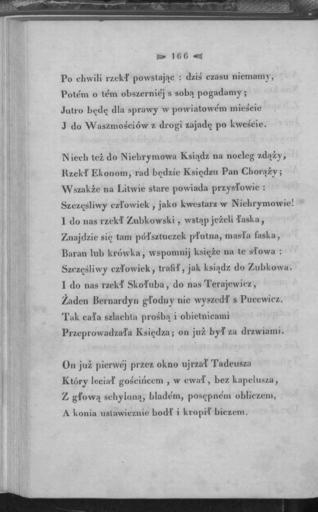 166
Po chwili rzekł powstając : dziś czasu niemamy,
Potém o tém obszerniéj s sobą pogadamy ;
Jutro będę dla sprawy w powiatowém mieście
J do Waszmościów z drogi zajadę po kweście.
Niech też do Niehrymowa Ksiądz na nocleg zdąży,
Rzekł Ekonom, rad będzie Księdzu Pan Chorąży ;
Wszakże na Litwie stare powiada przysłowie :
Szczęśliwy człowiek, jako kwestarz w Niehrymowie!
I do nas rzekł Zubkowski , wstąp jeżeli łaska,
Znajdzie się tam półsztuczek płutna, masła faska,
Baran lub krówka, wspomnij księże na te słowa :
Szczęśliwy człowiek, trafił, jak ksiądz do Zubkowa.
I do nas rzekł Skołuba, do nas Terajewicz,
Żaden Bernardyn głodny nie wyszedł s Pucewicz.
Tak cała szlachta prośbą i obietnicami
Przeprowadzała Księdza; on już był za drzwiami.
On już pierwéj przez okno ujrzał Tadeusza
Który leciał gościńcem , w cwał, bez kapelusza,
Z głową schyloną, bladém, posępném obliczem,
A konia ustawicznie bodł i kropił biczem.